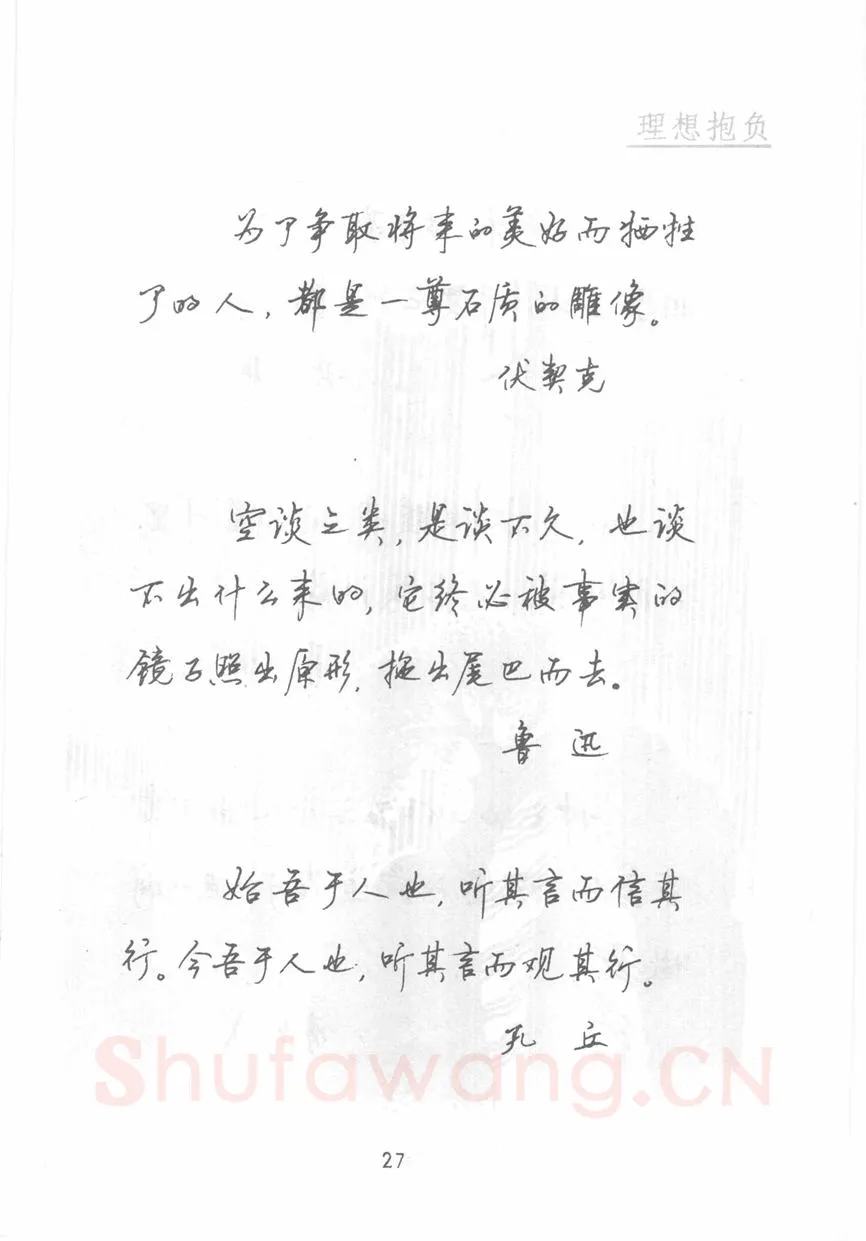 理想抱负
为了争取将来的美好而牺牲
了的人，都是一尊石质的雕像。
伏契克
空谈之类，是谈不久，也谈
不出什么来的，它终必被事实的
镜子照出原形，拖出尾巴而去。
鲁迅
始吾于人也，听其言而信其
行。今吾于人也，听其言而观其行。
孔丘
Shufawang.CN
27